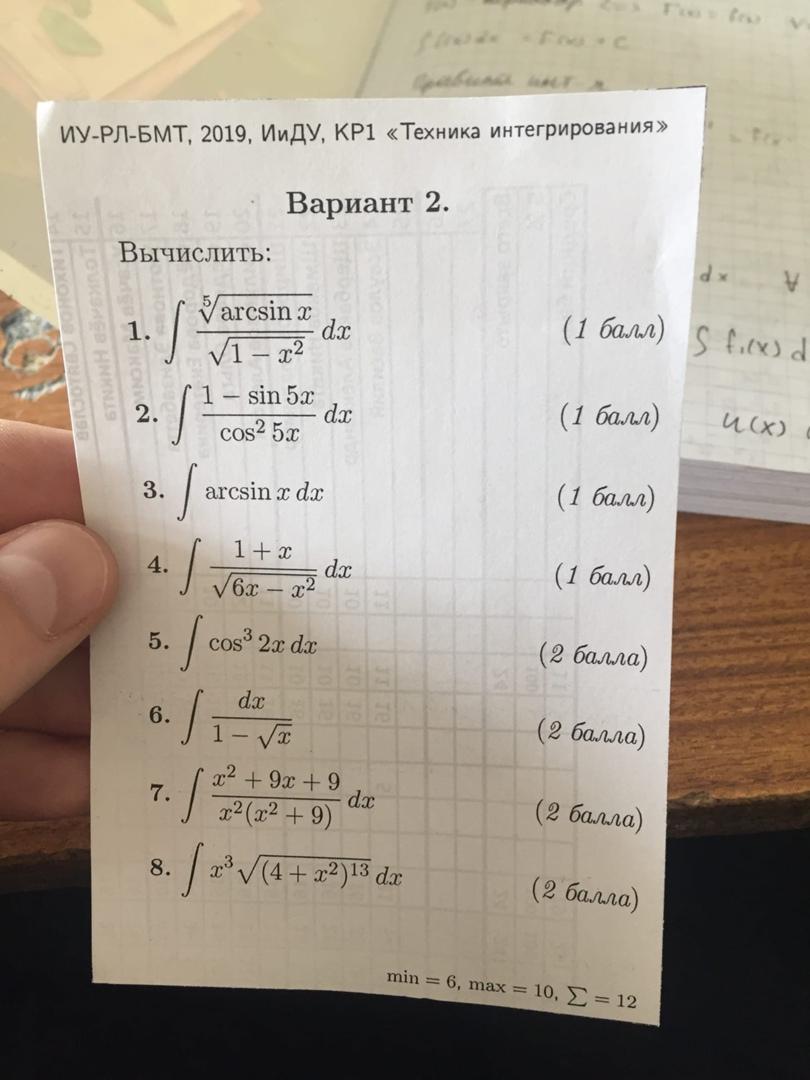 ИУ-РЛ-БМТ, 2019, ИиДУ, КР1 «Техника интегрирования»
Вариант 2.
Вычислить:
1. ∫ ⁵√(arcsin x) / √(1 − x²) dx (1 балл)
2. ∫ (1 − sin 5x) / (cos² 5x) dx (1 балл)
3. ∫ arcsin x dx (1 балл)
4. ∫ (1 + x) / √(6x − x²) dx (1 балл)
5. ∫ cos³ 2x dx (2 балла)
6. ∫ dx / (1 − √x) (2 балла)
7. ∫ (x² + 9x + 9) / (x²(x² + 9)) dx (2 балла)
8. ∫ x³ √((4 + x²)¹³) dx (2 балла)
min = 6, max = 10, ∑ = 12
∫ f₁(x) d
u(x)